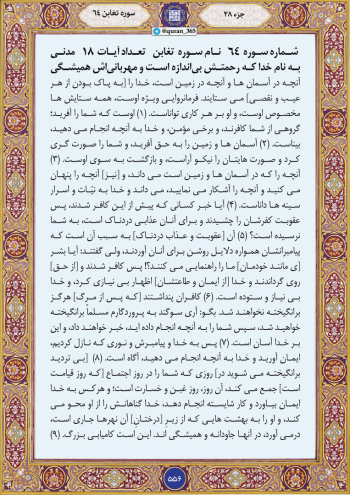 جزء ۲۸
سوره تغابن ٦٤
@quran_365
شماره سوره ٦٤ نام سوره تغابن تعداد آیات ۱۸ مدنی
به نام خدا که رحمتش بی‌اندازه است و مهربانی‌اش همیشگی
آنچه در آسمان ها و آنچه در زمین است، خدا را [به پاک بودن از هر
عیب و نقصی] می ستایند. فرمانروایی ویژه اوست، همه ستایش ها
مخصوص اوست، و او بر هر کاری تواناست. (۱) اوست که شما را آفرید؛
گروهی از شما کافرند، و برخی مؤمن، و خدا به آنچه انجام می دهید،
بیناست. (۲) آسمان ها و زمین را به حق آفرید، و شما را صورت گری
کرد و صورت هایتان را نیکو آراست، و بازگشت به سوی اوست. (۳)
آنچه را که در آسمان ها و زمین است می داند، و [نیز] آنچه را پنهان
می کنید و آنچه را آشکار می نمایید، می داند و خدا به نیّات و اسرار
سینه ها داناست. (۴) آیا خبر کسانی که پیش از این کافر شدند، پس
عقوبت کفرشان را چشیدند و برای آنان عذابی دردناک است، به شما
نرسیده است؟ (۵) آن [عقوبت و عذاب دردناک] به سبب آن است که
پیامبرانشان همواره دلایل روشن برای آنان آوردند، ولی گفتند: آیا بشر
[ی مانند خودمان] ما را راهنمایی می کنند؟! پس کافر شدند و [از حق]
روی گرداندند و خدا [از ایمان و طاعتشان] اظهار بی نیازی کرد، و خدا
بی نیاز و ستوده است. (۶) کافران پنداشتند [که پس از مرگ] هرگز
برانگیخته نخواهند شد. بگو: آری سوگند به پروردگارم مسلماً برانگیخته
خواهید شد، سپس شما را به آنچه انجام داده اید، خبر خواهند داد، و این
بر خدا آسان است. (۷) پس به خدا و پیامبرش و نوری که نازل کردیم،
ایمان آورید و خدا به آنچه انجام می دهید، آگاه است. (۸) [بی تردید
برانگیخته می شوید در] روزی که شما را در روز اجتماع [که روز قیامت
است] جمع می کند، آن روز، روز غبن و خسارت است؛ و هرکس به خدا
ایمان بیاورد و کار شایسته انجام دهد، خدا گناهانش را از او محو می
کند، و او را به بهشت هایی که از زیرِ [درختانِ] آن نهرها جاری است،
درمی آورد، در آنها جاودانه و همیشگی اند. این است کامیابی بزرگ. (۹)
۵۵۶